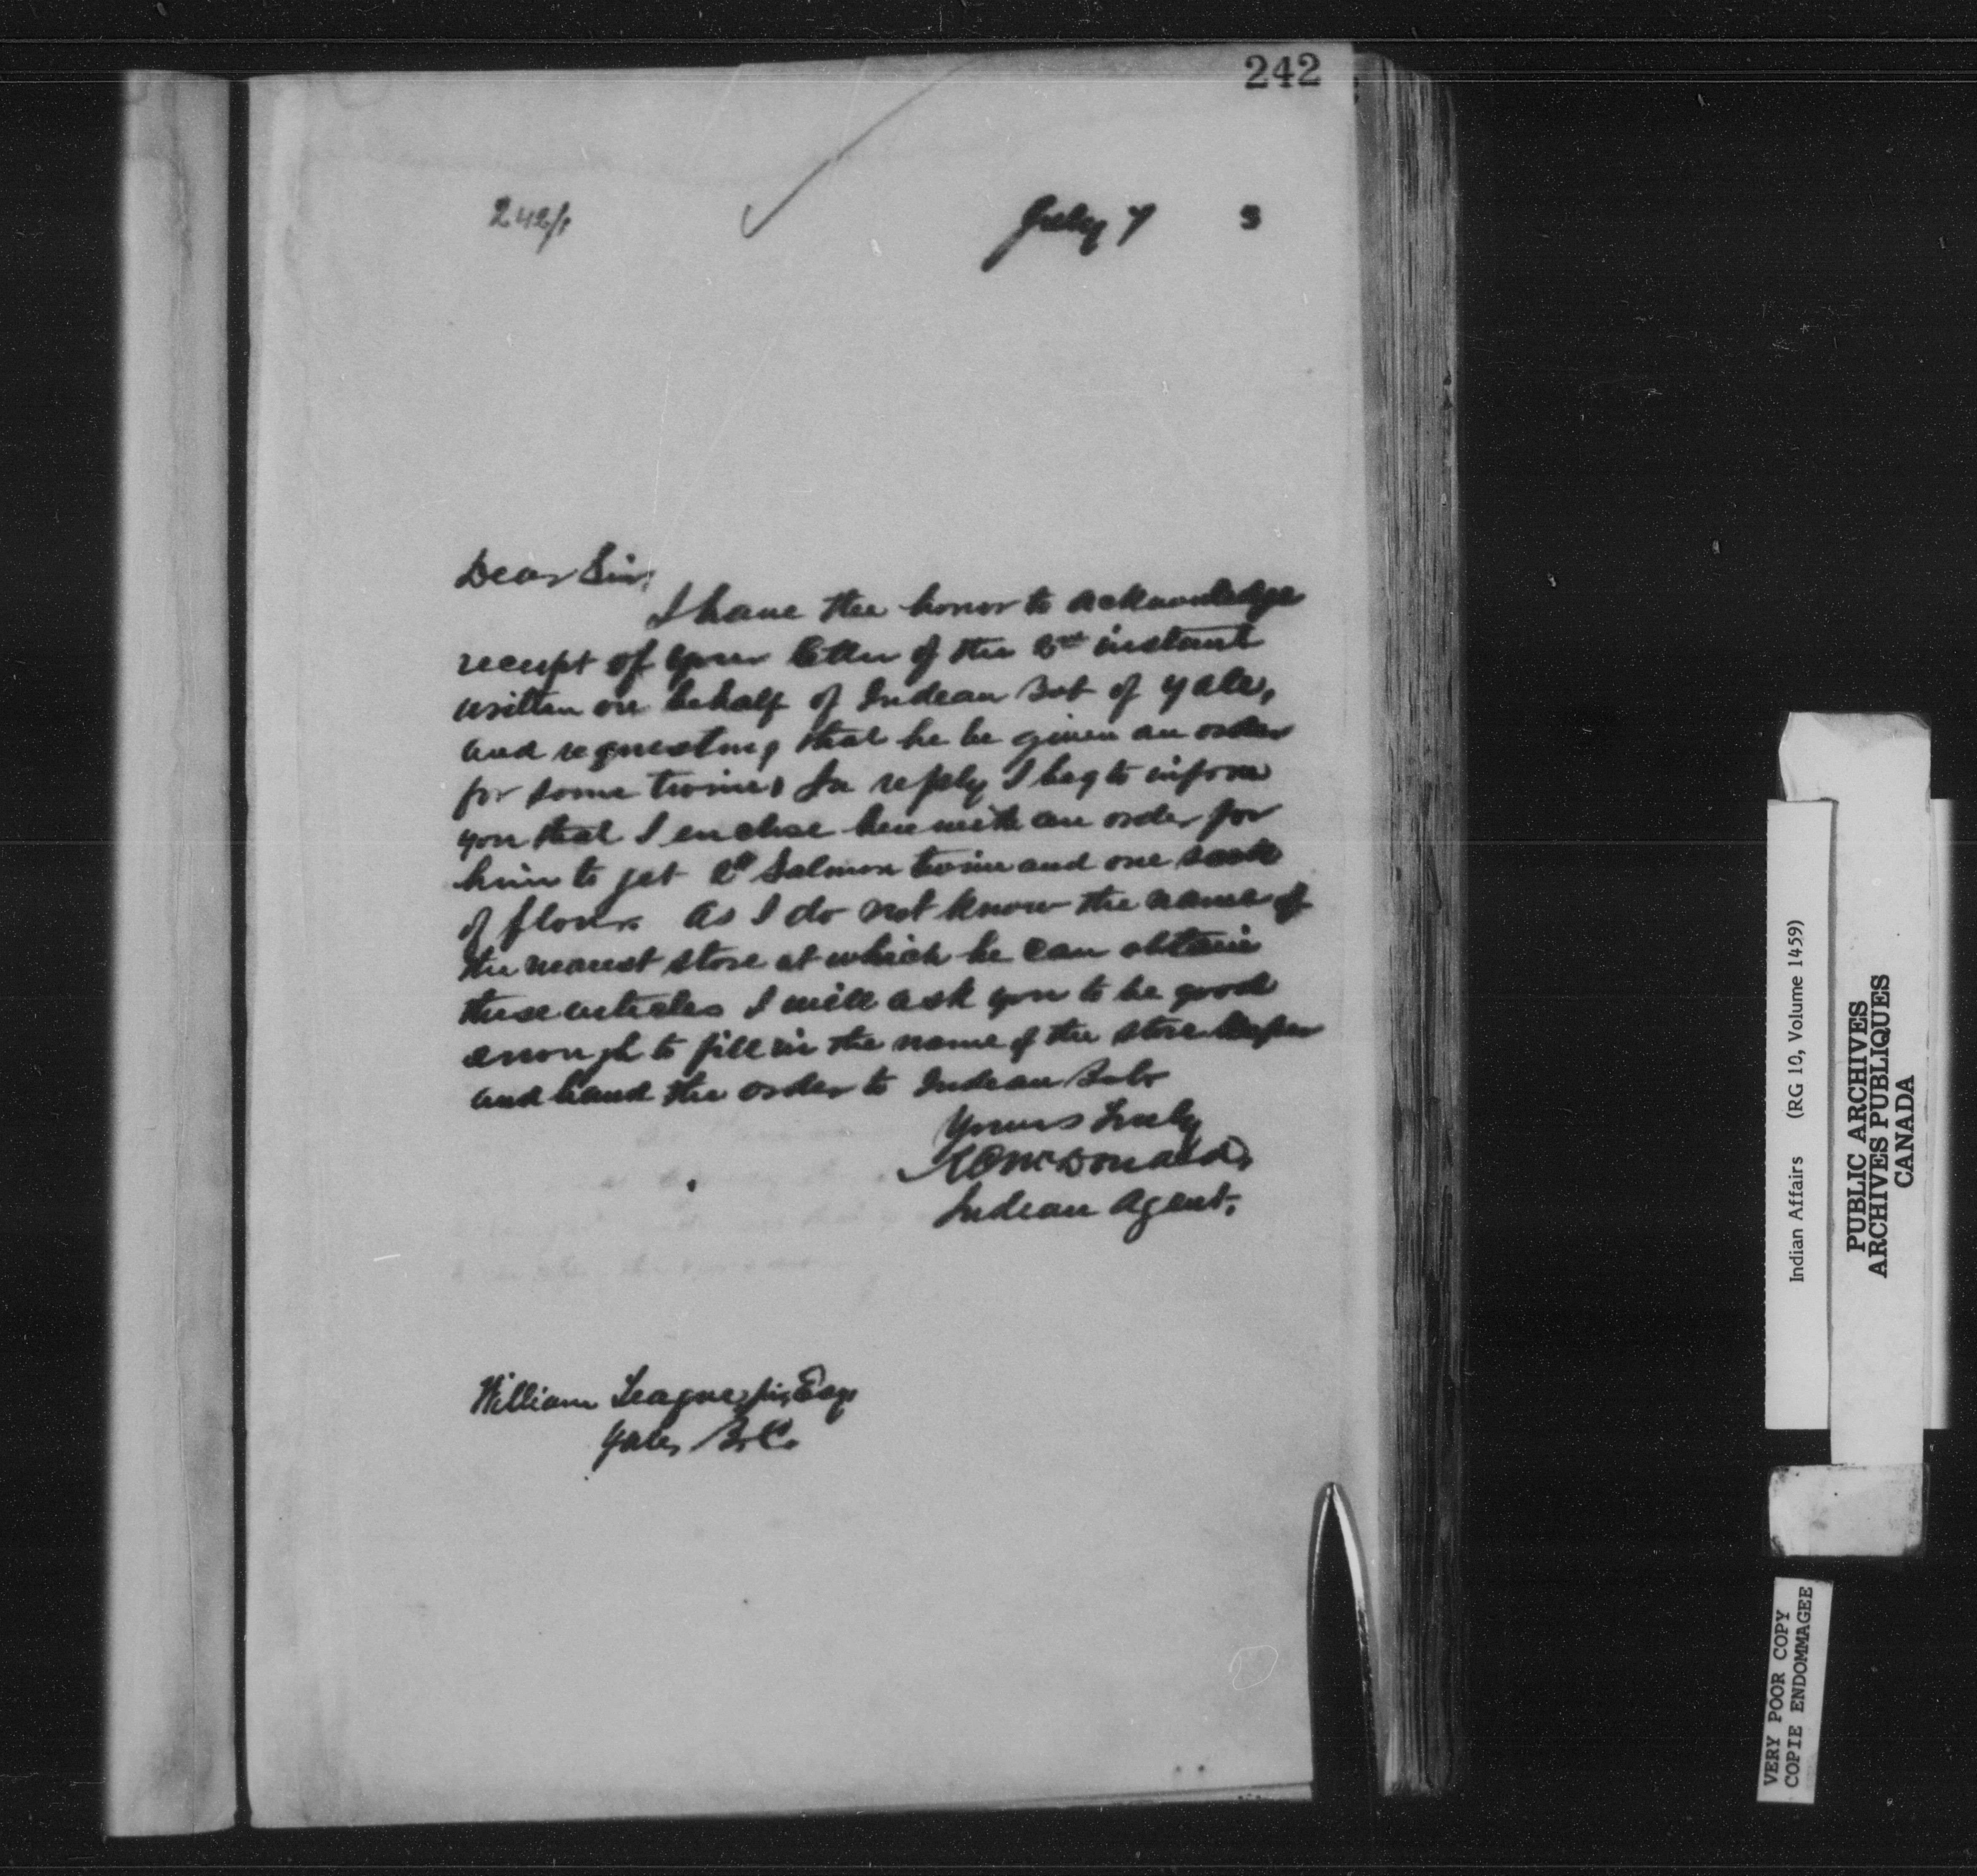 242
242/1
July 7 3
Dear Sir,
I have the honor to acknowledge
receipt of your letter of the instant
written on behalf of Indian Bob of Yale,
and requesting that he be given an order
for some twine, In reply I beg to inform
you that I enclose herewith an order for
him to get 2# Salmon twine and one sack
of flour. As I do not know the name of
the nearest store at which he can obtain
these articles I will ask you to be good
enough to fill in the name of the store keeper
and hand the order to Indian Bob.
Yours truly
McDonald,
Indian Agent.
William Teague, Jr, Esq
Yale, B.C.
Indian Affairs (RG 10, Volume 1459)
PUBLIC ARCHIVES
ARCHIVES PUBLIQUES
CANADA
VERY POOR COPY
COPIE ENDOMMAGEE